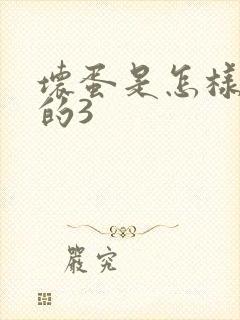 壞蛋是怎樣
的3
嚴究